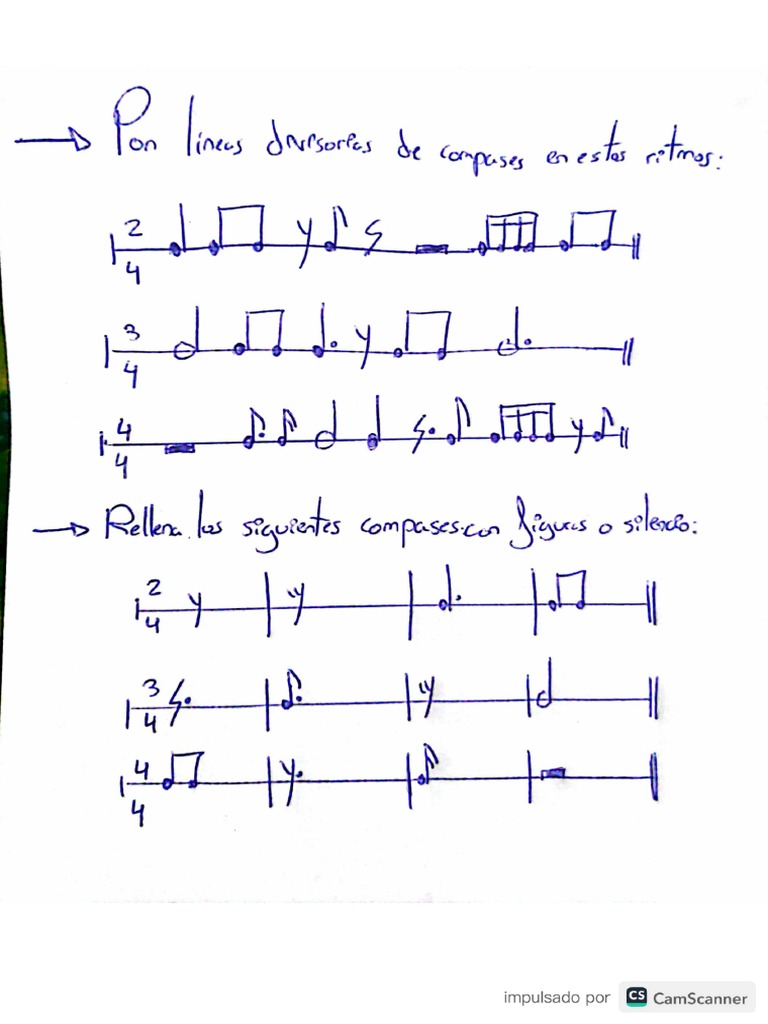 → Pon líneas divisorias de compases en estos ritmos:
2
4
3
4
4
4
→ Rellena los siguientes compases con figuras o silencio:
2
4
3
4
4
4
impulsado por CS CamScanner